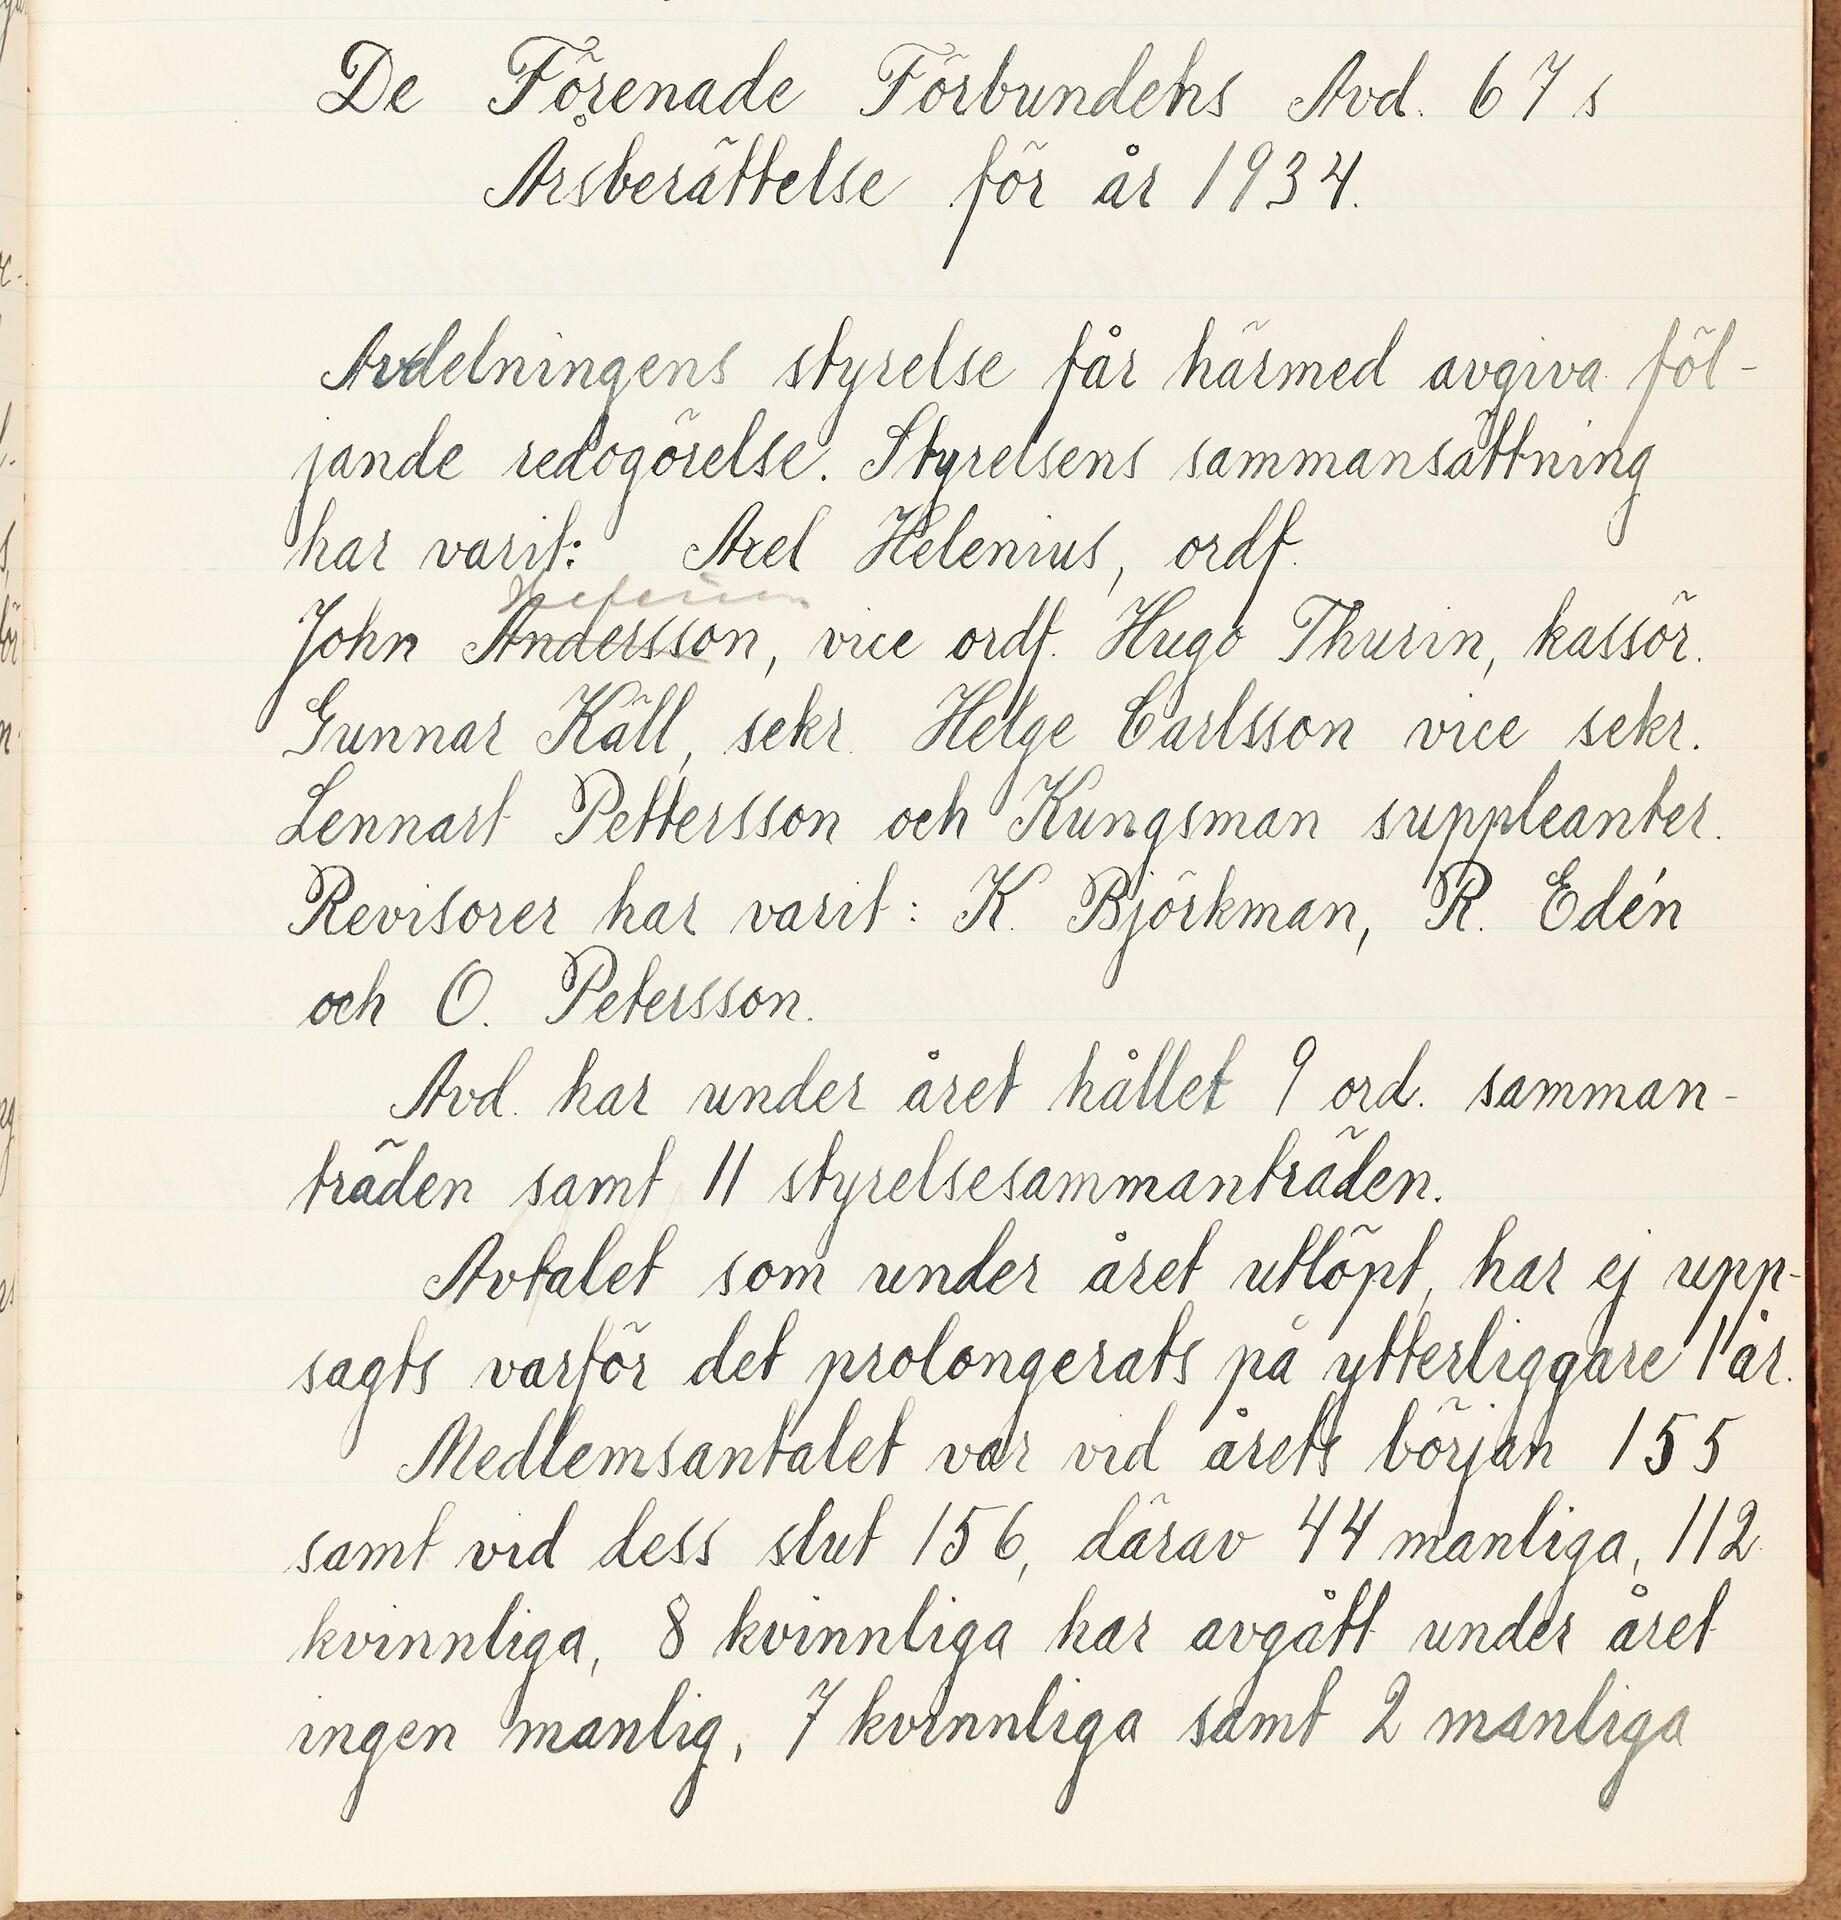 De Förenade Förbundets Avd. 67s
Årsberättelse för år 1934.
Avdelningens styrelse får härmed avgiva föl-
jande redogörelse. Styrelsens sammansättning
har varit: Axel Helenius, ordf.
John Andersson, vice ordf. Hugo Thurin, kassör.
Gunnar Käll, sekr. Helge Carlsson vice sekr.
Lennart Pettersson och Kungsman suppleanter.
Revisorer har varit: K. Björkman, R. Edén
och O. Petersson.
Avd. har under året hållet 9 ord. samman-
träden samt 11 styrelsesammanträden.
Avtalet som under året utlöpt, har ej upp-
sagts varför det prolongerats på ytterliggare 1 år.
Medlemsantalet var vid årets början 155
samt vid dess slut 156, därav 44 manliga, 112
kvinnliga, 8 kvinnliga har avgått under året
ingen manlig, 7 kvinnliga samt 2 manliga